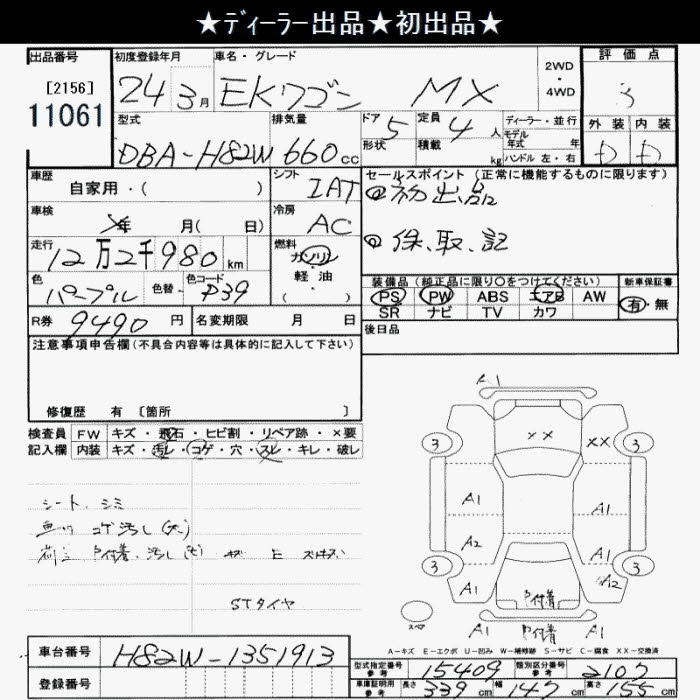 ★ディーラー出品★初出品★
出品番号
[2156]
11061
初度登録年月
24 3月
車名・グレード
EKワゴン MX
2WD
・
4WD
評価点
3
外装 内装
D D
型式
DBA-H82W
排気量
660cc
ドア 5
形状
定員 4人
積載 kg
ディーラー・並行
モデル年式 年
ハンドル 左・右
車歴
自家用・( )
シフト
IAT
車検
年 月( 日)
冷房
AC
走行
12万2千980km
燃料
ガソリン
軽・油
( )
色
パープル
色替
色コード
P39
R券
9490円
名変期限 月 日
セールスポイント(正常に機能するものに限ります)
初出品
保、取、記
装備品(純正品に限り○をつけてください)
PS PW ABS エアB AW
SR ナビ TV カワ
新車保証書
有・無
後日品
注意事項申告欄(不具合内容等は具体的に記入して下さい)
修復歴 有 [箇所 ]
検査員記入欄
FW キズ・飛石・ヒビ割・リペア跡・×要
内装 キズ・汚レ・コゲ・穴・スレ・キレ・破レ
シート、シミ
コゲ汚レ(大)
付着、汚レ(大) キズ
STタイヤ
A1
3 XX XX 3
A1 A1
A2 A1
3 3
A1 付着 A2
スペア
A1 付着 A1
A-キズ E-エクボ U-凹み W-補修跡 S-サビ C-腐食 XX-交換済
車台番号
H82W-1351913
登録番号
型式指定番号 参考
15409
類別区分番号 参考
2107
車庫証明用 参考
長さ 339cm 幅 147cm 高さ 155cm